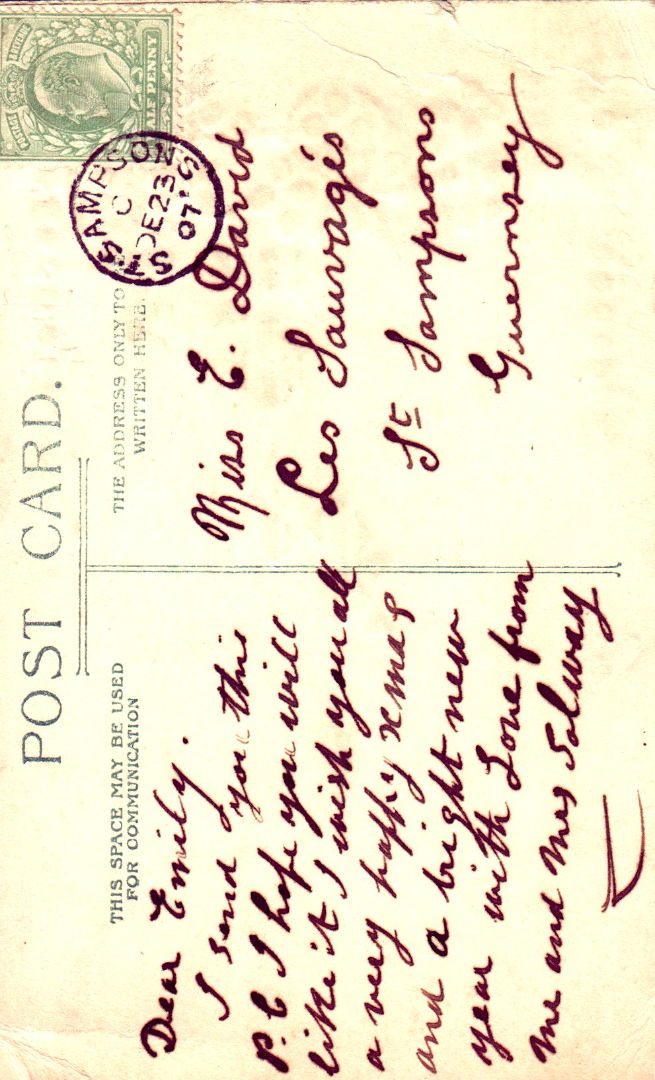 POST CARD.
THIS SPACE MAY BE USED
FOR COMMUNICATION
THE ADDRESS ONLY TO BE
WRITTEN HERE.
HALF PENNY
ST SAMPSON'S
C
DE 23
07
Dear Emily.
I send you this
P.C I hope you will
like it I wish you all
a very happy xmas
and a bright new
year with Love from
Mr and Mrs Salway
Miss E. David
Les Sauvagés
St Sampsons
Guernsey